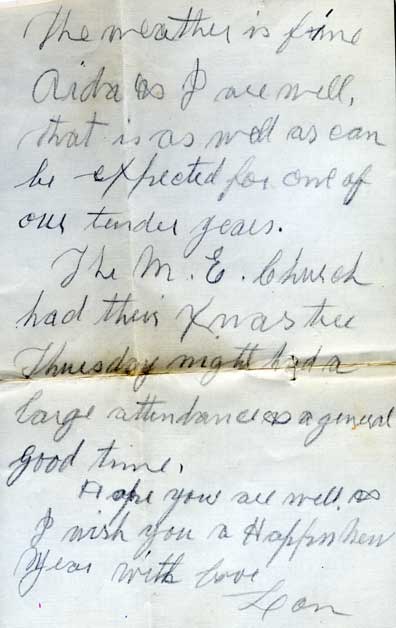 The weather is fine
Aida & I are well,
that is as well as can
be expected for one of
our tender years.
The M. E. Church
had their Xmas tree
Thursday night had a
large attendance & a general
good time.
Hope you are well &
I wish you a Happy New
Year with love
Lon